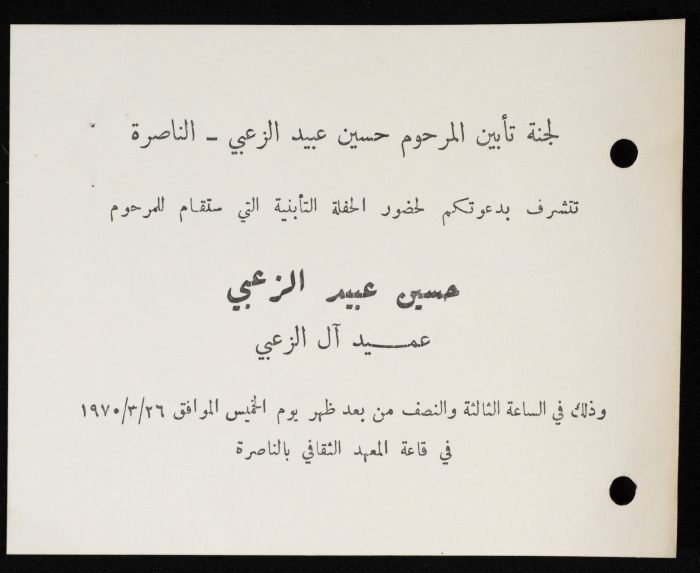 لجنة تأبين المرحوم حسين عبيد الزعبي – الناصرة
تتشرف بدعوتكم لحضور الحفلة التأبنية التي ستقام للمرحوم
حسين عبيد الزعبي
عمـــيد آل الزعبي
وذلك في الساعة الثالثة والنصف من بعد ظهر يوم الخميس الموافق ١٩٧٠/٣/٢٦
في قاعة المعهد الثقافي بالناصرة